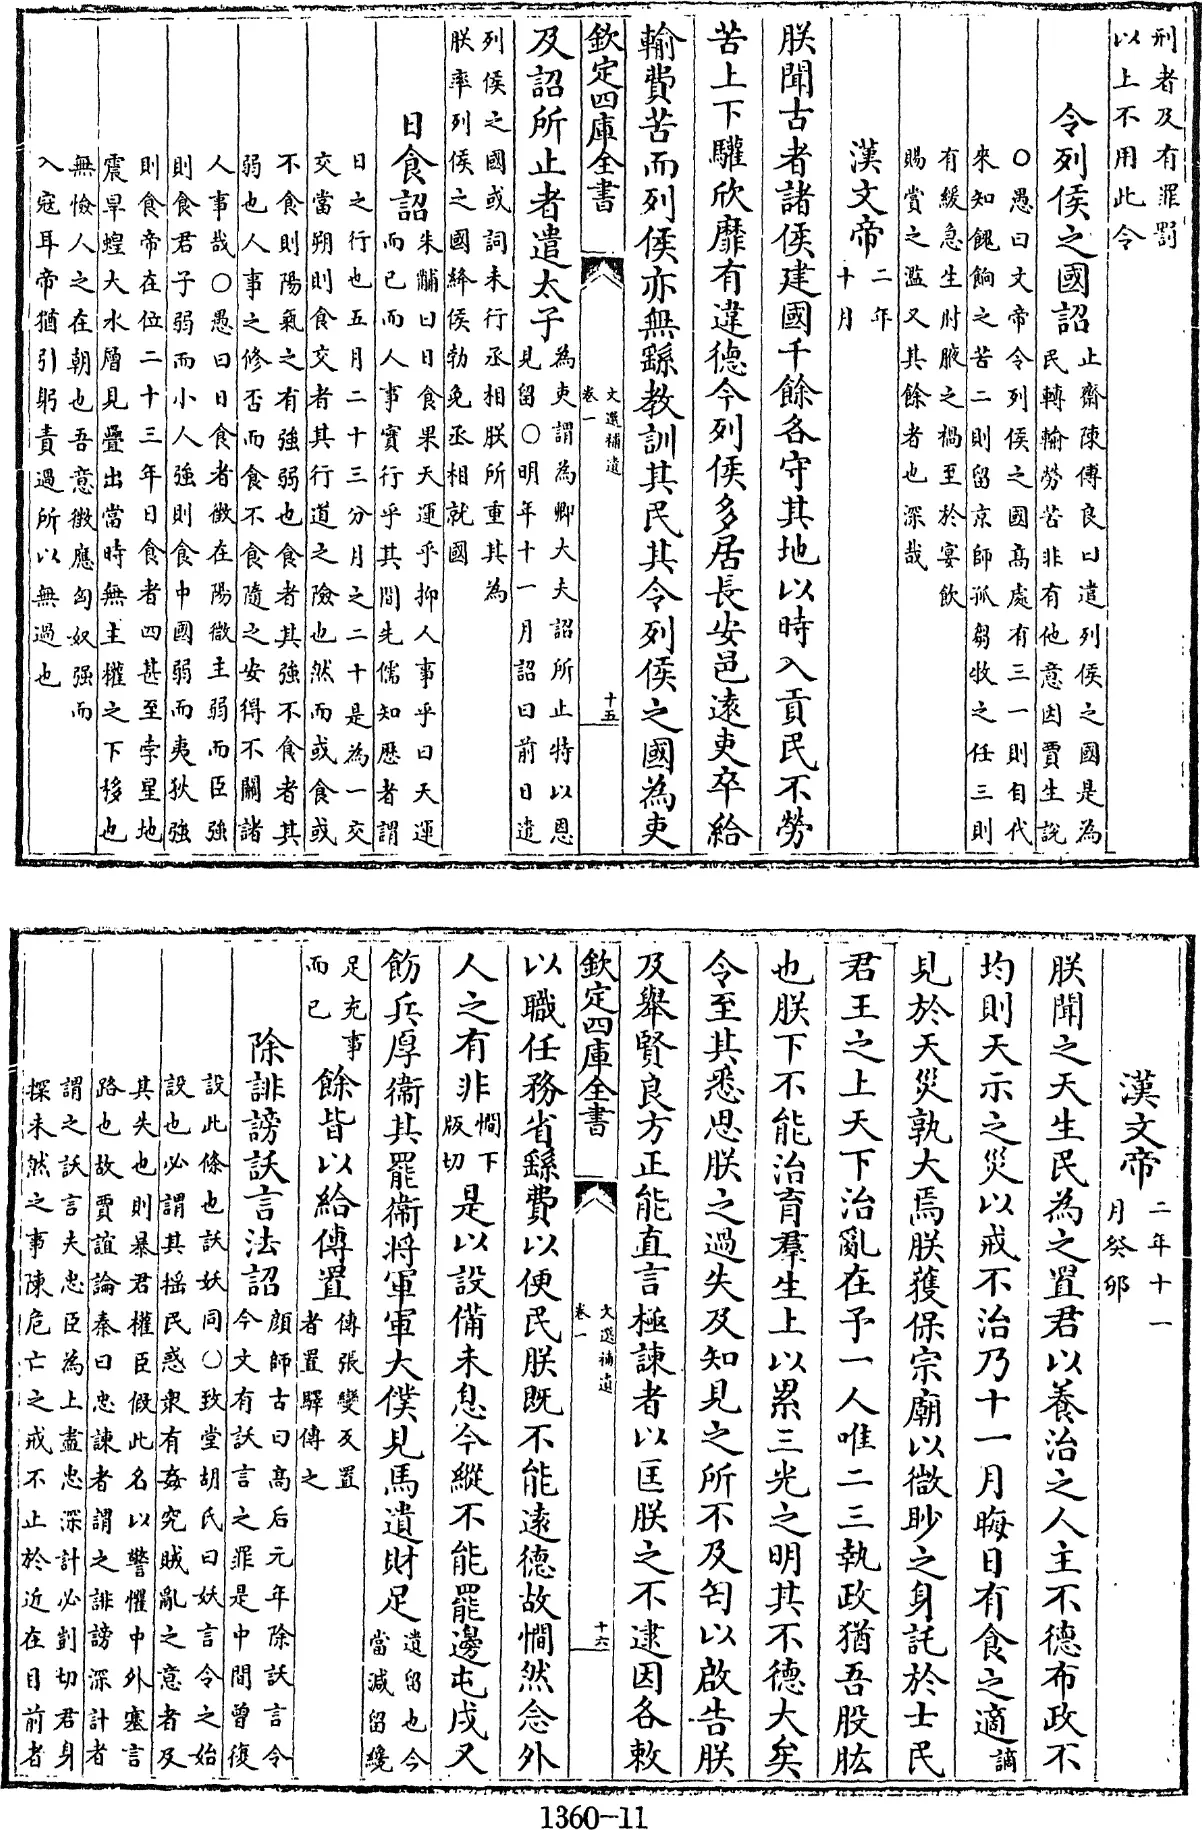 刑者及有罪罰
以上不用此令
令列侯之國詔
止齋陳傅良曰遣列侯之國是為
民轉輸勞苦非有他意因賈生説
○愚曰文帝令列侯之國髙處有三一則自代
來知餽餉之苦二則留京師孤芻牧之任三則
有緩急生肘腋之禍至於宴飲
賜賞之濫又其餘者也深哉
漢文帝
二年
十月
朕聞古者諸侯建國千餘各守其地以時入貢民不勞
苦上下驩欣靡有違德今列侯多居長安邑逺吏卒給
輸費苦而列侯亦無繇教訓其民其令列侯之國為吏
欽定四庫全書
文選補遺
卷一
十五
及詔所止者遣太子
為吏謂為卿大夫詔所止特以恩
見留○明年十一月詔曰前日遣
列侯之國或詞未行丞相朕所重其為
朕率列侯之國絳侯勃免丞相就國
日食詔
朱黼曰日食果天運乎抑人事乎曰天運
而已而人事實行乎其間先儒知歴者謂
日之行也五月二十三分月之二十是為一交
交當朔則食交者其行道之險也然而或食或
不食則陽氣之有強弱也食者其強不食者其
弱也人事之修否而食不食隨之安得不關諸
人事哉○愚曰日食者徴在陽微主弱而臣強
則食君子弱而小人強則食中國弱而夷狄強
則食帝在位二十三年日食者四甚至孛星地
震旱蝗大水層見疊出當時無主權之下移也
無憸人之在朝也吾意徴應匈奴强而
入寇耳帝猶引躬責過所以無過也
漢文帝
二年十一
月癸卯
朕聞之天生民為之置君以養治之人主不德布政不
均則天示之災以戒不治乃十一月晦日有食之適
謫
見於天災孰大焉朕獲保宗廟以微眇之身託於士民
君王之上天下治亂在予一人唯二三執政猶吾股肱
也朕下不能治育羣生上以累三光之明其不德大矣
令至其悉思朕之過失及知見之所不及匄以啟告朕
及舉賢良方正能直言極諫者以匡朕之不逮因各敕
欽定四庫全書
文選補遺
卷一
十六
以職任務省繇費以便民朕既不能逺德故憪然念外
人之有非
憪下
版切
是以設備未息今縱不能罷邊屯戍又
飭兵厚衛其罷衛將軍軍大僕見馬遺財足
遺留也今
當減留纔
足充事
而已
餘皆以給傳置
傳張變反置
者置驛傳之
除誹謗訞言法詔
顔師古曰髙后元年除訞言令
今文有訞言之罪是中間曾復
設此條也訞妖同○致堂胡氏曰妖言令之始
設也必謂其揺民惑衆有姦宄賊亂之意者及
其失也則暴君權臣假此名以警懼中外塞言
路也故賈誼論秦曰忠諫者謂之誹謗深計者
謂之訞言夫忠臣為上盡忠深計必剴切君身
探未然之事陳危亡之戒不止於近在目前者
1360-11